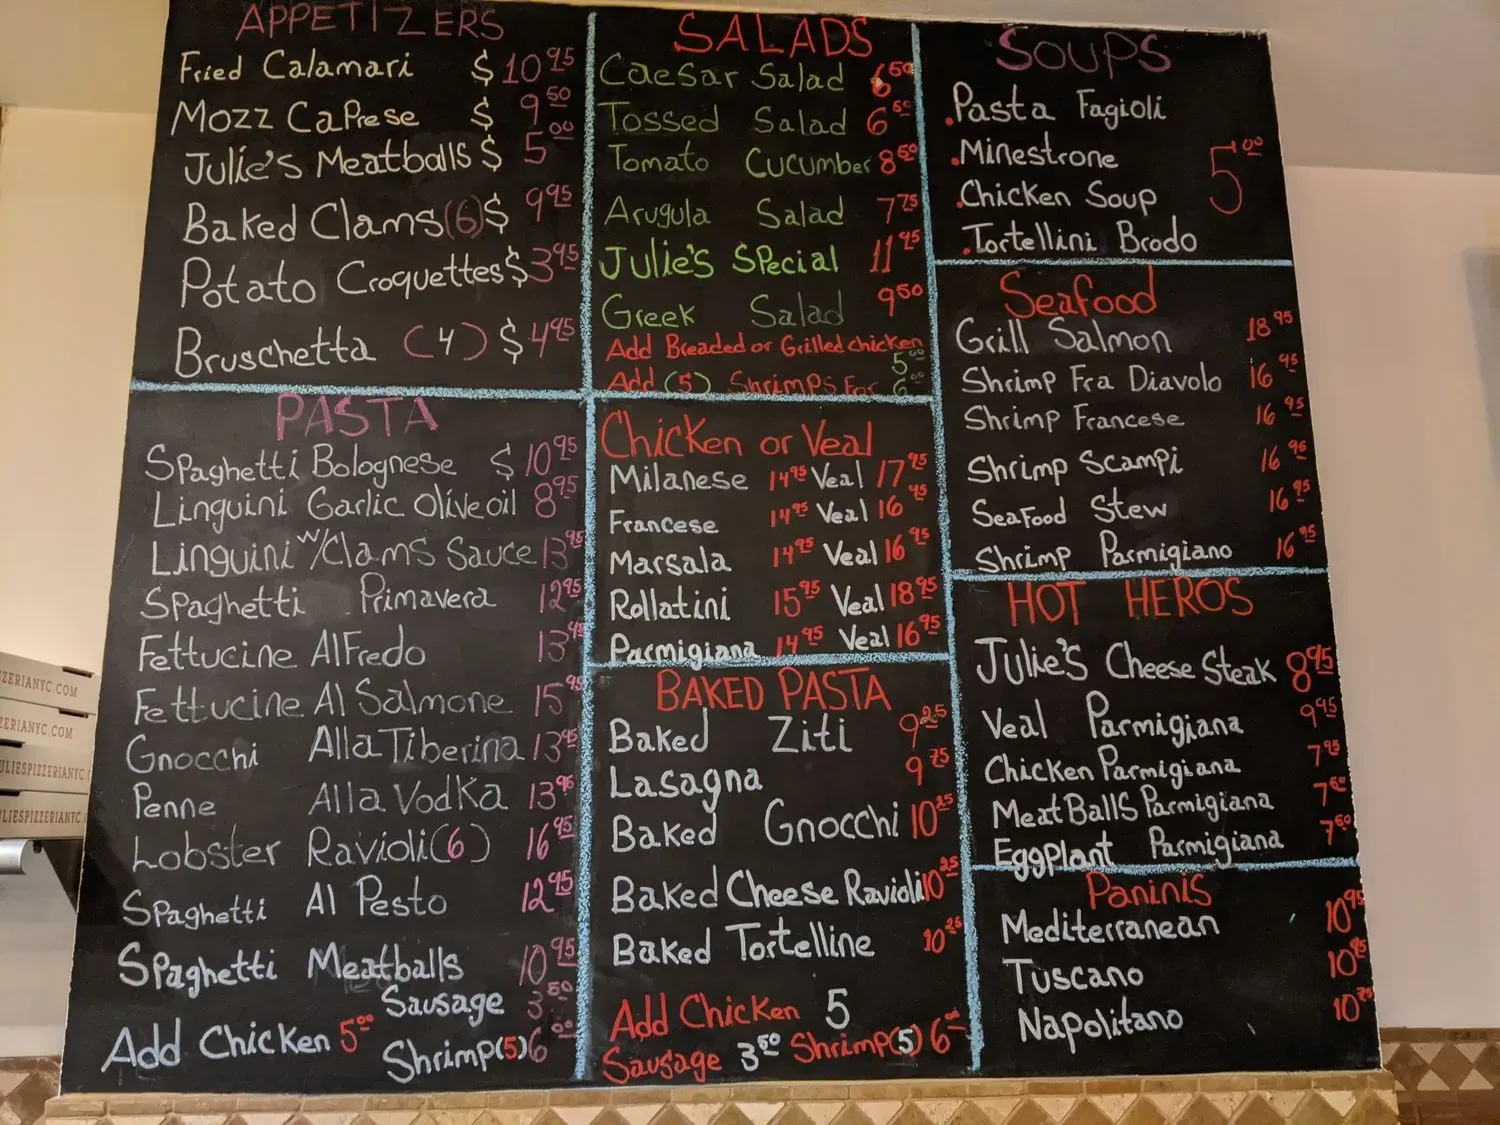 APPETIZERS
Fried Calamari $ 10 95
Mozz CaPrese $ 9 50
Julie's Meatballs $ 5 00
Baked Clams (6) $ 9 95
Potato Croquettes $ 3 95
Bruschetta (4) $ 4 95
PASTA
Spaghetti Bolognese $ 10 95
Linguini Garlic Olive oil 8 95
Linguini w/Clams Sauce 13 95
Spaghetti Primavera 12 95
Fettucine AlFredo 13 95
Fettucine Al Salmone 15 95
Gnocchi Alla Tiberina 13 95
Penne Alla Vodka 13 95
Lobster Ravioli (6) 16 95
Spaghetti Al Pesto 12 95
Spaghetti Meatballs 10 95
Sausage 3 50
Add Chicken 5 00 Shrimp (5) 6 00
SALADS
Caesar Salad 6 50
Tossed Salad 6 50
Tomato Cucumber 8 50
Arugula Salad 7 75
Julie's Special 11 95
Greek Salad 9 50
Add Breaded or Grilled chicken
5 00
Add (5) Shrimps For 6 00
Chicken or Veal
Milanese 14 95 Veal 17 95
Francese 14 95 Veal 16 95
Marsala 14 95 Veal 16 95
Rollatini 15 95 Veal 18 95
Parmigiana 14 95 Veal 16 95
BAKED PASTA
Baked Ziti 9 25
Lasagna 9 75
Baked Gnocchi 10 25
Baked Cheese Ravioli 10 25
Baked Tortelline 10 25
Add Chicken 5
Sausage 3 50 Shrimp (5) 6
SOUPS
.Pasta Fagioli
.Minestrone 5 00
.Chicken Soup
.Tortellini Brodo
Seafood
Grill Salmon 18 95
Shrimp Fra Diavolo 16 95
Shrimp Francese 16 95
Shrimp Scampi 16 95
Seafood Stew 16 95
Shrimp Parmigiano 16 95
HOT HEROS
Julie's Cheese Steak 8 95
Veal Parmigiana 9 95
Chicken Parmigiana 7 95
MeatBallS Parmigiana 7 50
Eggplant Parmigiana 7 50
Paninis
Mediterranean 10 95
Tuscano 10 95
Napolitano 10 75
ZZERIANYC.COM
ZZERIANYC.COM
ULIESPIZZERIANYC.C
ULIESPIZZERIANYC.